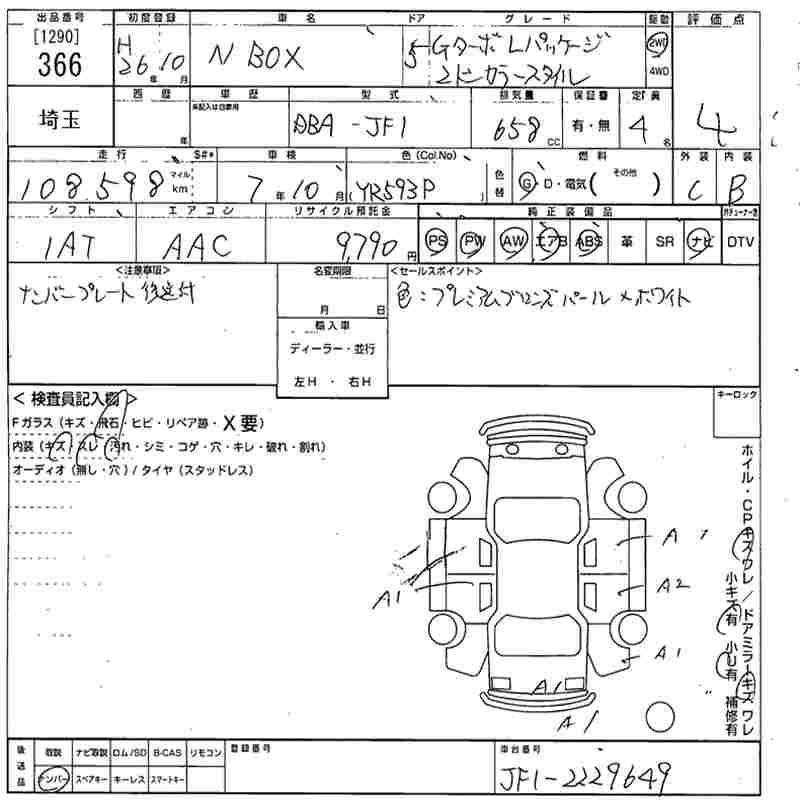 出品番号 初度登録 車名 ドア グレード 駆動 評価点
[1290] 366 H26年10月 N BOX 5 Gターボ Lパッケージ 2WD
2トンカラースタイル 4WD
西暦 車歴 型式 排気量 保証書 定員
埼玉 年 未記入は自家用 DBA-JF1 658cc 有・無 4名 4
走行 S#* 車検 色(Col.No) 燃料 外装 内装
108,598 マイル km 7年10月 YR593P 色替 G・D・電気( その他 ) C B
シフト エアコン リサイクル預託金 純正装備品
IAT AAC 9,790円 PS PW AW エアB ABS 革 SR ナビ DTV
<注意事項> 名変期限 <セールスポイント>
ナンバープレート後送付 月 日 色:プレミアムブロンズパール×ホワイト
輸入車
ディーラー・並行
左H・右H
<検査員記入欄> キーロック
Fガラス(キズ・飛石・ヒビ・リペア跡・X要)
内装(キズ・スレ・汚れ・シミ・コゲ・穴・キレ・破れ・割れ)
オーディオ(無し・穴)/タイヤ(スタッドレス)
A
A1 A2
A1
A1
A1
ホイル・CPキズワレ/ドアミラーキズワレ
小キズ有 小U有 補修有
後送品 取説 ナビ取説 ロム/SD B-CAS リモコン 登録番号 車台番号
ナンバー スペアキー キーレス スマートキー JF1-2229649